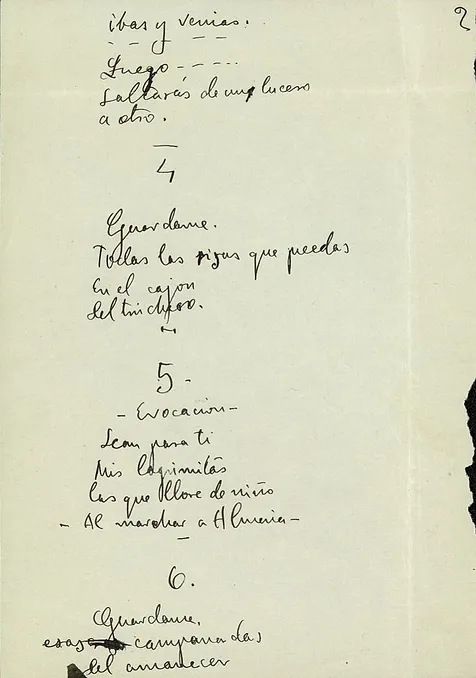 2
ibas y venias.
- - - - -
Luego - - - - -
Saltarás de un lucero
a otro.
4
Guardame.
Todas las rizas que puedas
En el cajon
del trinchero.
5 -
- Evocacion -
Sean para ti
Mis lagrimitas
las que lloré de niño
- Al marchar a Almeria -
6.
Guardame,
campanadas
del amanecer